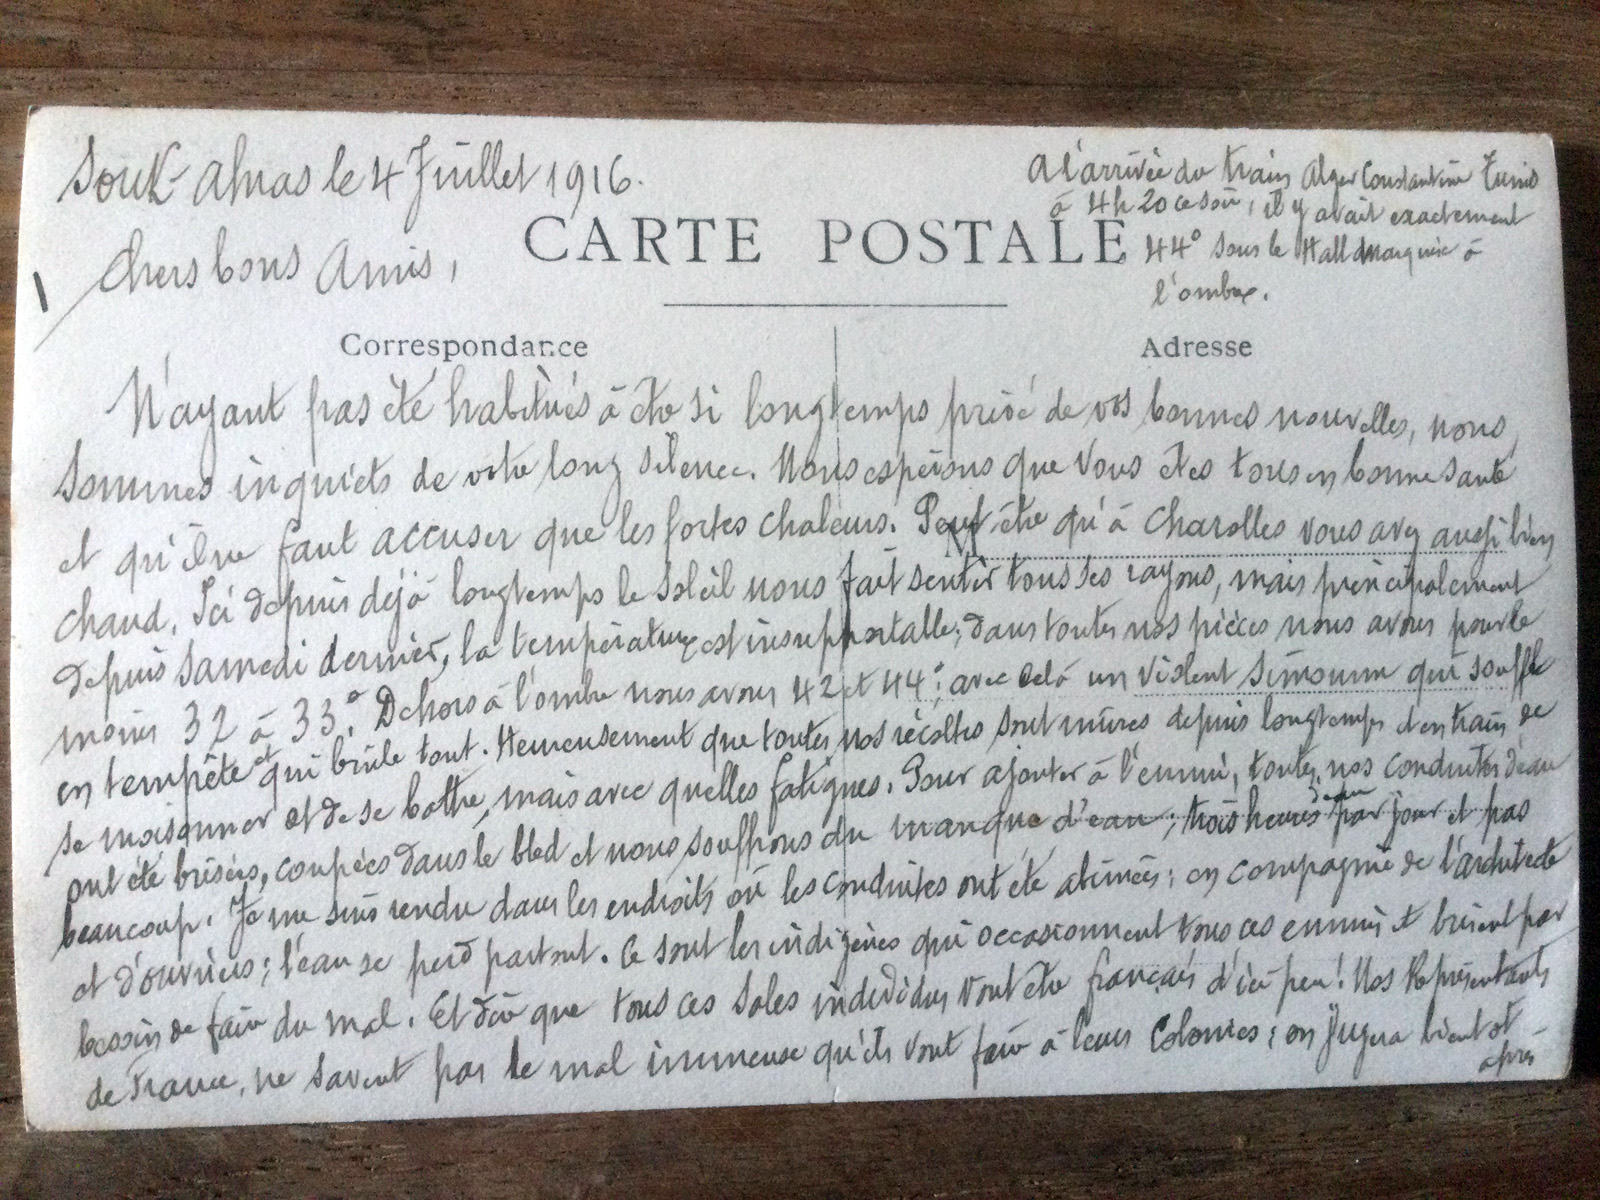 Souk-Ahras le 4 Juillet 1916.
A l'arrivée du train Alger Constantine Tunis
à 4h20 ce soir, il y avait exactement
44° sous le Hall marquise à
l'ombre.
CARTE POSTALE
Chers bons Amis,
Correspondance
Adresse
N'ayant pas été habitués à être si longtemps privé de vos bonnes nouvelles, nous
sommes inquiets de votre long silence. Nous espérons que vous êtes tous en bonne santé
et qu'il ne faut accuser que les fortes chaleurs. Peut-être qu'à Charolles vous avez aussi bien
M
chaud. Ici depuis déjà longtemps le soleil nous fait sentir tous ses rayons, mais principalement
depuis samedi dernier, la température est insupportable; dans toutes nos pièces nous avons pour le
moins 32 à 33°. Dehors à l'ombre nous avons 42 et 44°; avec cela un violent simoun qui souffle
en tempête et qui brûle tout. Heureusement que toutes nos récoltes sont mûres depuis longtemps et en train de
se moisonner et de se battre, mais avec quelles fatigues. Pour ajouter à l'ennui, toutes nos conduites d'eau
ont été brisées, coupées dans le bled et nous souffrons du manque d'eau; trois heures d'eau par jour et pas
beaucoup. Je me suis rendu dans les endroits où les conduites ont été abimées; en compagnie de l'architecte
et d'ouvriers; l'eau se perd partout. Ce sont les indigènes qui occasionnent tous ces ennuis et brisent par
besoin de faire du mal. Et dire que tous ces sales individus vont être français d'ici peu! Nos Représentants
de France, ne savent pas le mal immense qu'ils vont faire à leurs Colonies; on jugera bientôt
après